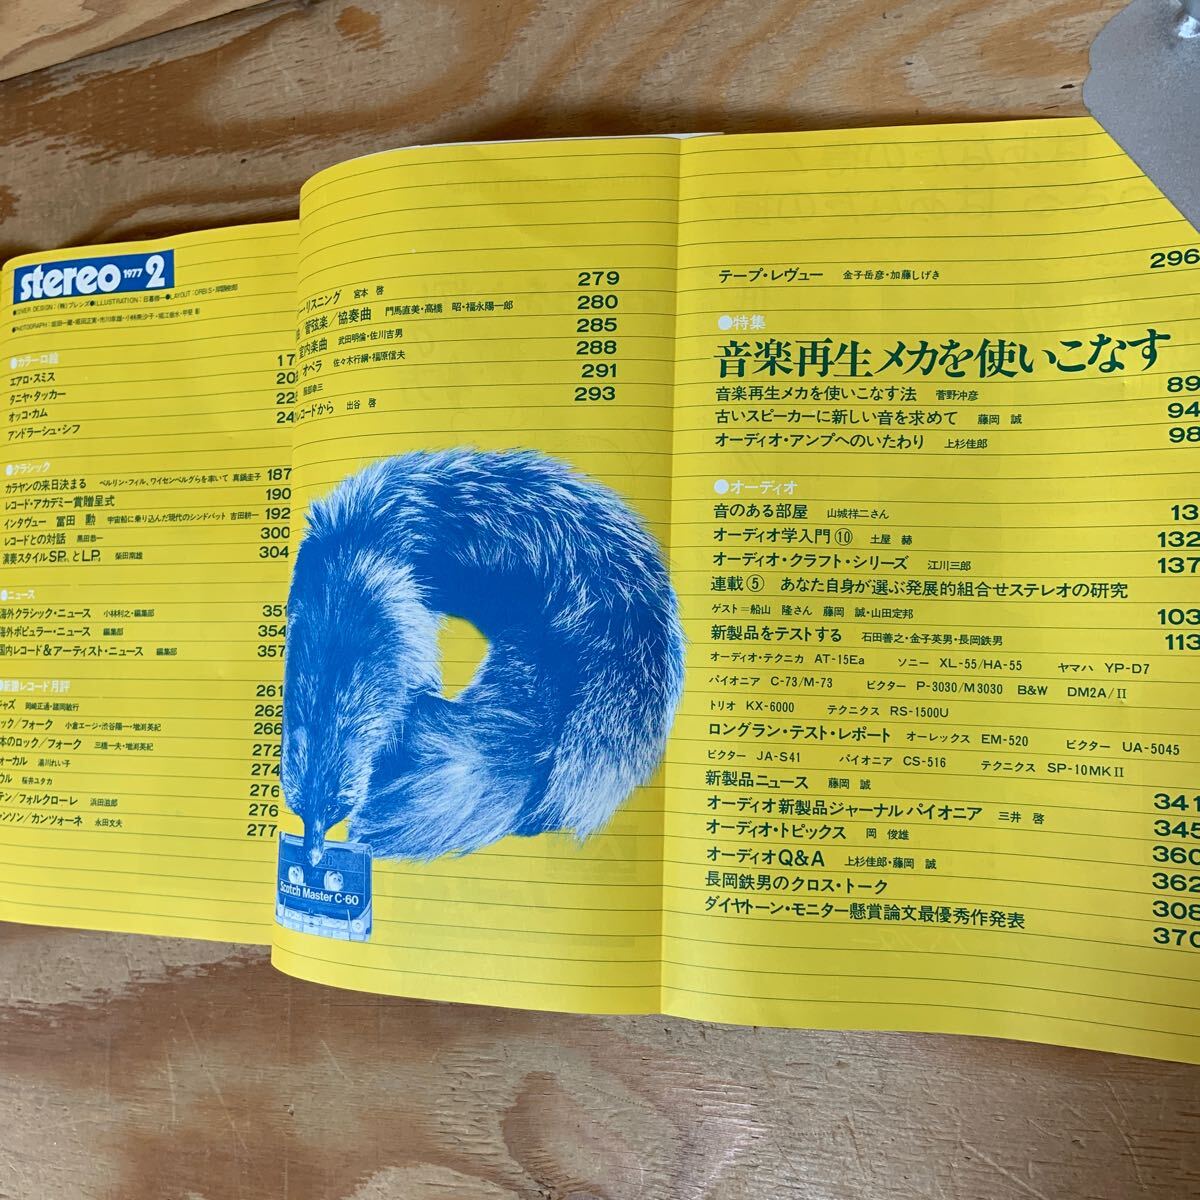 stereo 1977 2
●COVER DESIGN：(株)ブレンズ●ILLUSTRATION：日暮修一●LAYOUT：ORBiS・岸顯樹郎
●カラー口絵
エアロ・スミス 17
タニヤ・タッカー 20
オッコ・カム 22
アンドラーシュ・シフ 24
●クラシック
カラヤンの来日決まる ベルリン・フィル、ワイセンベルグらを率いて 真鍋圭子 187
レコード・アカデミー賞贈呈式 190
インタヴュー 冨田 勲 宇宙船に乗り込んだ現代のシンドバット 吉田耕一 192
レコードとの対話 黒田恭一 300
演奏スタイルSP。とLP。 柴田南雄 304
●ニュース
海外クラシック・ニュース 小林利之・編集部 351
海外ポピュラー・ニュース 編集部 354
国内レコード&アーティスト・ニュース 編集部 357
●新譜レコード月評
ジャズ 岡崎正通・諸岡敏行 261
ック/フォーク 小倉エージ・渋谷陽一・増渕英紀 262
本のロック/フォーク 三橋一夫・増渕英紀 266
ォーカル 湯川れい子 272
ウル 桜井ユタカ 274
テン/フォルクローレ 浜田滋郎 276
ャンソン/カンツォーネ 永田文夫 276
277
ー・リスニング 宮本 啓 279
管弦楽/協奏曲 門馬直美・高橋 昭・福永陽一郎 280
室内楽曲 武田明倫・佐川吉男 285
オペラ 佐々木行綱・福原信夫 288
服部幸三 291
レコードから 出谷 啓 293
Scotch Master C-60
テープ・レヴュー 金子岳彦・加藤しげき 296
●特集
音楽再生メカを使いこなす
音楽再生メカを使いこなす法 菅野沖彦 89
古いスピーカーに新しい音を求めて 藤岡 誠 94
オーディオ・アンプへのいたわり 上杉佳郎 98
●オーディオ
音のある部屋 山城祥二さん 13
オーディオ学入門⑩ 土屋 赫 132
オーディオ・クラフト・シリーズ 江川三郎 137
連載⑤ あなた自身が選ぶ発展的組合せステレオの研究
ゲスト＝船山 隆さん 藤岡 誠・山田定邦 103
新製品をテストする 石田善之・金子英男・長岡鉄男 113
オーディオ・テクニカ AT-15Ea ソニー XL-55/HA-55 ヤマハ YP-D7
パイオニア C-73/M-73 ビクター P-3030/M3030 B&W DM2A/II
トリオ KX-6000 テクニクス RS-1500U
ロングラン・テスト・レポート オーレックス EM-520 ビクター UA-5045
ビクター JA-S41 パイオニア CS-516 テクニクス SP-10MKII
新製品ニュース 藤岡 誠 341
オーディオ新製品ジャーナル パイオニア 三井 啓 345
オーディオ・トピックス 岡 俊雄 360
オーディオQ&A 上杉佳郎・藤岡 誠 362
長岡鉄男のクロス・トーク 308
ダイヤトーン・モニター懸賞論文最優秀作発表 370